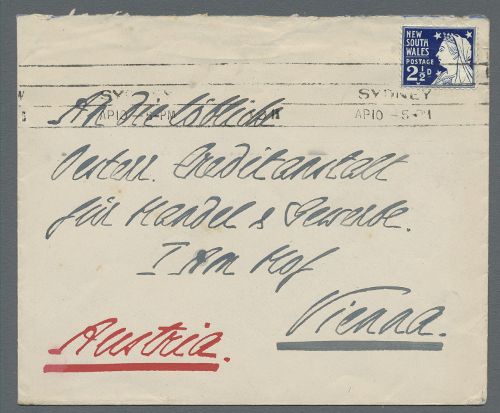 NEW
SOUTH
WALES
POSTAGE
2½D
SYDNEY SYDNEY
AP10 -5-PM AP10 -5-PM
An die löbliche
Oesterr. Creditanstalt
für Handel & Gewerbe.
I Am Hof
Vienna.
Austria.